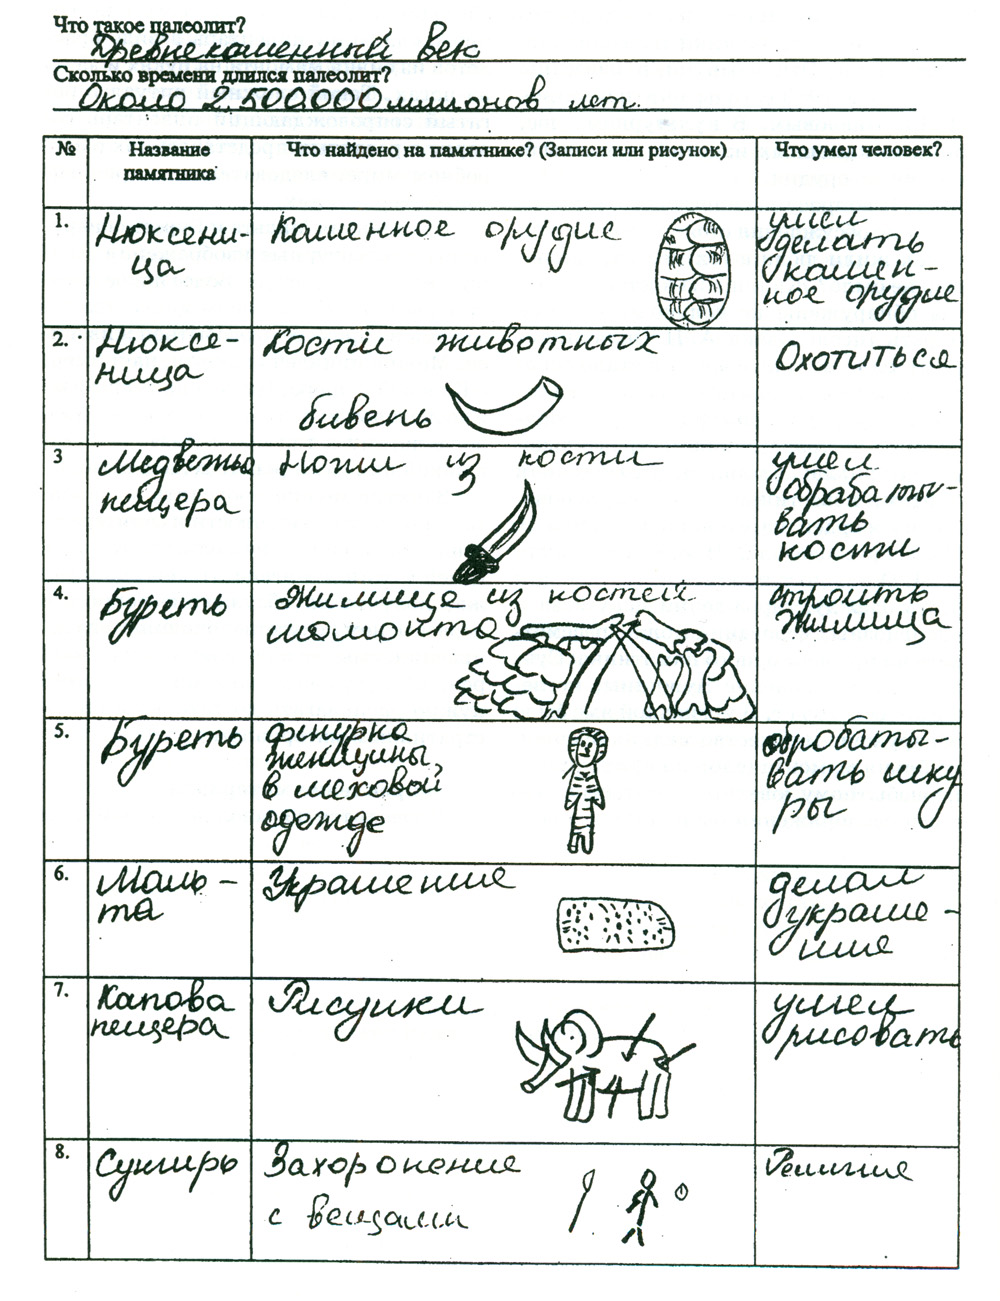 Что такое палеолит?
Древнекаменный век
Сколько времени длился палеолит?
Около 2,500000 миллионов лет.
№ Название памятника Что найдено на памятнике? (Записи или рисунок) Что умел человек?
1. Нюксени-
ца
Каменное орудие
умел
делать
камен-
ное орудие
2. Нюксе-
ница
Кости животных
бивень
Охотиться
3 Медвежья
пещера
Ножи из кости
умел
обрабаты-
вать
кости
4. Буреть
Жилище из костей
мамонта
строить
жилища
5. Буреть
фигурка
женщины,
в меховой
одежде
обробаты-
вать шку
ры
6. Маль-
та
Украшение
делал
украше-
ния
7. Капова
пещера
Рисунки
умел
рисовать
8. Сунгирь
Захоронение
с вещами
Религия